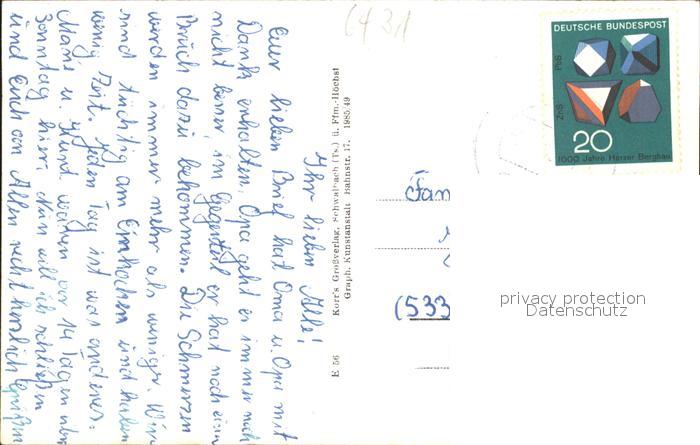 Ihr lieben Alle!
Euer lieben Brief hat Oma u. Opa mit
Dank erhalten. Opa geht es immer noch
nicht besser, im Gegenteil er hat noch ein
Bruch dazu bekommen. Die Schmerzen
werden immer mehr als weniger. Wir
sind tüchtig am Einkochen und haben
wenig Zeit. Jeden Tag ist was anderes.
Marie u. Horst waren vor 14 Tagen über
Sonntag hier. Nun will ich schließen
und Euch von Allen recht herzlich Grüßen
E 56 Korr's Großverlag, Schwalbach (Ts.) ü. Ffm.-Höchst
Graph. Kunstanstalt Bahnstr. 17. 1985/49
6431
DEUTSCHE BUNDESPOST
PbS
ZnS
20
1000 Jahre Harzer Bergbau
Fam
(533
privacy protection
Datenschutz